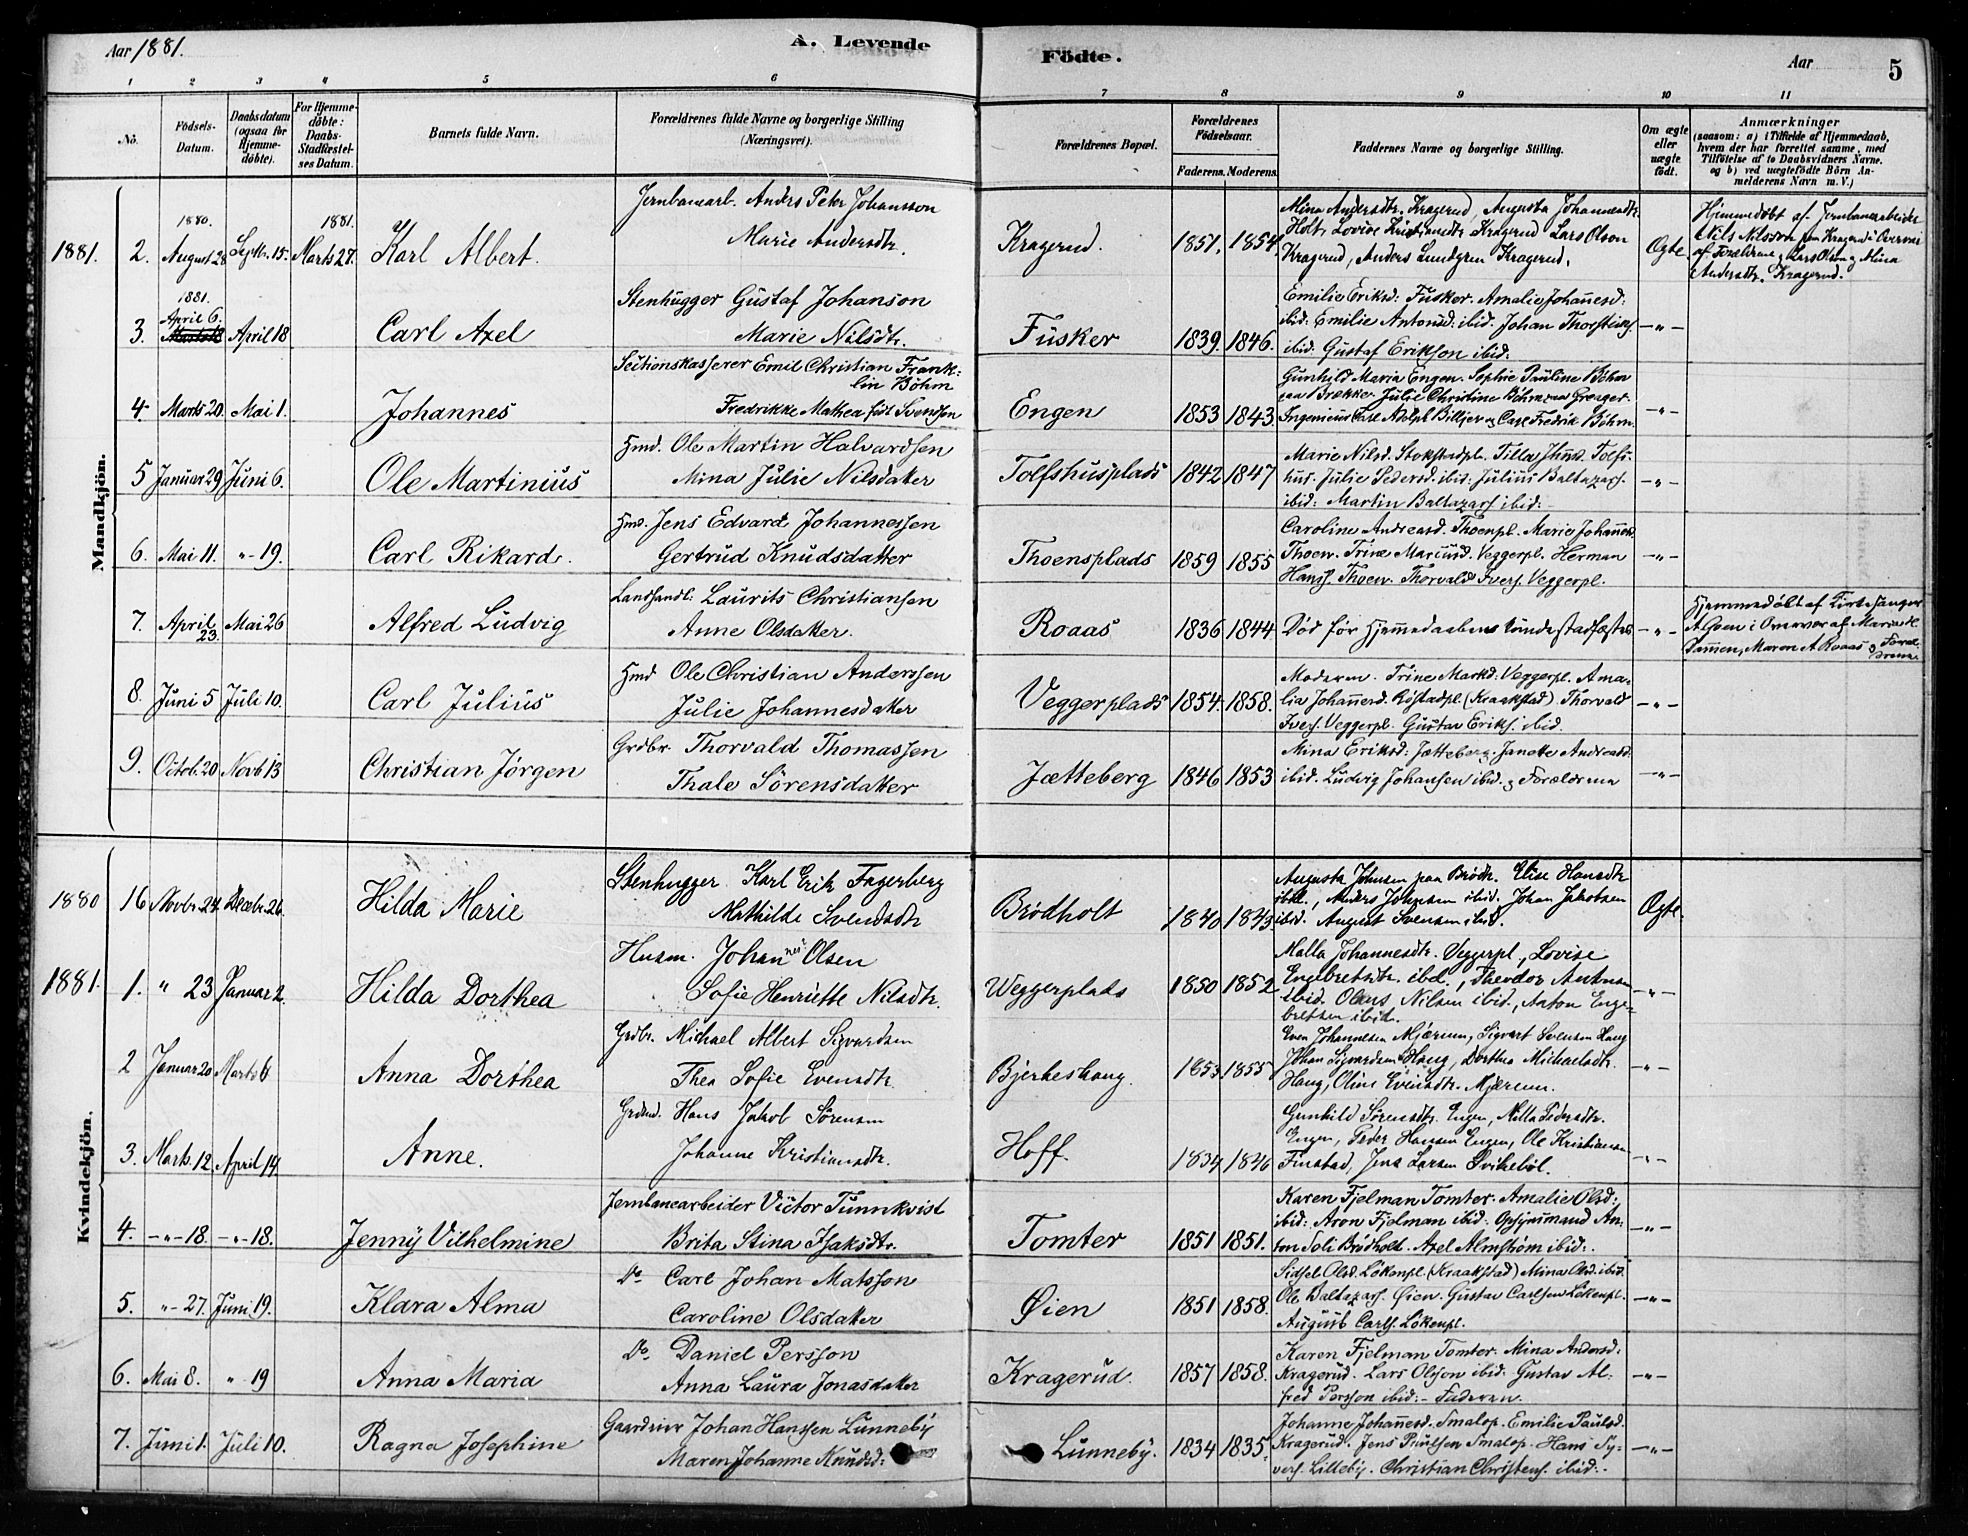 Aar 1881. A. Levende Födte. Aar 5
1 2 3 4 5 6 7 8 9 10 11
No. Födsels-Datum. Daabsdatum (ogsaa for Hjemmedöbte). For Hjemmedöbte: Daabs-Stadfæstelses Datum. Barnets fulde Navn. Forældrenes fulde Navne og borgerlige Stilling (Næringsvei). Forældrenes Bopæl. Forældrenes Födselsaar. Faderens. Moderens. Faddernes Navne og borgerlige Stilling. Om ægte eller uægte födt. Anmærkninger (saasom: a) i Tilfælde af Hjemmedaab, hvem der har forrettet samme, med Tilföielse af to Daabsvidners Navne. og b) ved uægtefödte Börn Anmelderens Navn m. V.)
Mandkjön.
1881. 2. 1880. August 28 Septbr. 15. 1881. Marts 27. Karl Albert. Jernbanearb. Anders Peter Johansson
Marie Andersdtr. Kragerud. 1851. 1854. Mina Andersdtr. Kragerud, Augusta Johannesdtr.
Holt, Lovise Kristiansdtr. Kragerud Lars Olson
Kragerud, Anders Lundgren Kragerud. Ægte. Hjemmedöbt af Jernbanearbeider
Nils Nilsson paa Kragerud i Overvær
af Forældrene og Lars Olson og Mina
Andersdtr. Kragerud.
3. 1881. April 6. April 18 Carl Axel Stenhugger Gustaf Johanson
Marie Nilsdtr. Fusker 1839. 1846. Emilie Eriksd: Fusker. Amalie Johannesd:
ibid: Emilie Antonsd: ibid. Johan Thorsteins.
ibid: Gustaf Erikson ibid. —„—
4. Marts 20. Mai 1. Johannes Sectionskasserer Emil Christian Frank-
lin Böhm
Fredrikke Mathea född Svendsen Engen 1853 1843. Gunhild Maria Engen. Sophie Pauline Böhm
paa Brækker. Julie Christine Böhm
Ingenieur Carl Adolph Billjer og Carl Fredrik Böhm. —„—
5 Januar 29 Juni 6. Ole Martinius Hmd. Ole Martin Halvardsen
Mina Julie Nilsdatter Tolfshusplads 1842 1847 Marie Nilsd. Stokstadpl. Tilla Tolfs-
hus. Julie Pedersd. ibid. Julius Baltazars.
ibid: Martin Baltazars ibid: —„—
6. Mai 11. „ 19. Carl Rikard. Hmd. Jens Edvard Johannessen
Gertrud Knudsdatter Thoensplads 1859 1855 Caroline Andreasd. Thoenpl. Marie Johannesd.
Thoen. Trine Mariusd. Veggerpl. Herman
Hanss. Thoen. Thorvald Ivers. Veggerpl. —„—
7. April 23. Mai 26 Alfred Ludvig Landhandl: Laurits Christiansen
Anne Olsdatter. Roaas 1836 1844. Död för Hjemmedaaben kunde stadfæstes —„— Hjemmedöbt af Kirkesanger
i Overvær af
Maren A Roaas og Foræl-
drene
8. Juni 5 Juli 10. Carl Julius Hmd Ole Christian Anderssen
Julie Johannesdatter Veggerplads 1854. 1858. Moderen. Trine Markd. Veggerpl. Ama-
lia Johannesd. Röstadpl (Kraakstad) Thorvald
Ivers. Veggerpl. Gustav Eriks. ibid. —„—
9. Octob. 20 Novb 13 Christian Jörgen Grdbr. Thorvald Thomassen
Thale Sörensdatter Jætteberg 1846 1853 Mina Eriksd: Jætteberg. Janette Andreasd.
ibid. Ludvig Johansen ibid. og Forældrene —„—
Kvindekjön.
1880 16 Novbr. 24. Decbr. 26. Hilda Marie Stenhugger Karl Erik Fagerberg
Mathilde Svendsdtr Brødholt 1840 1843. Augusta Johnsen paa Brødh. Elise Hansdtr
ibid., Anders Johnsen ibid. Johan Jakobsen
ibid. August Svensen ibid. Ægte.
1881. 1. „ 23 Januar 2. Hilda Dorthea Husm. Johannes Olsen
Sofie Henriette Nilsdtr. Weggerplads 1850 1852 Malla Johannesdtr. Veggerpl., Lovise
Engebretsdtr. ibid., Theodor Antonsen
ibid. Olaus Nilsen ibid., Anton Enge-
bretsen ibid. —„—
2 Januar 20 Marts 6 Anna Dorthea Grdbr. Michael Albert Sigvardsen
Thea Sofie Evensdtr. Bjerkeshaug. 1853. 1855 Even Johannesen Mjærum, Sigvart Svensen Haug
Johan Sigvardsen Haug, Dorthea Michaelsdtr.
Haug, Oline Evensdtr. Mjærum. —„—
3. Marts. 12. April 14. Anne. Grdmd. Hans Jakob Sörensen
Johanne Kristiansdtr. Hoff. 1834 1846 Gunhild Sörensdtr. Engen, Malla Pedersdtr.
Engen, Peder Hansen Engen, Ole Kristiansen
Finstad, Jens Larsen Svikeböl. —„—
4. —„—18. —„—18. Jenny Vilhelmine Jernbanearbeider Victor Tunnkvist
Brita Stina Isaksdtr. Tomter 1851 1851. Karen Fjelman Tomter. Amalie Olsd:
ibid: Aron Fjelman ibid: Opsynsmand An-
ton Toli Brødholt. Axel Almström ibid:. —„—
5. „—27. Juni 19. Klara Alma Do Carl Johan Matsson
Caroline Olsdatter Øien 1851 1858. Sidsel Olsd. Lökenpl. (Kraakstad) Mina Olsd. ibid.
Ole Baltazars. Øien. Gustav Carlsen Lökenpl.
August Carls. Lökenpl. —„—
6. Mai 8. „ 19 Anna Maria Do. Daniel Persson
Anna Laura Jonasdatter Kragerud. 1857 1858. Karen Fjelman Tomter. Mina Andersd:
Kragerud. Lars Olsson ibid: Gustav Al-
fred Persson ibid:- Faderen. —„—
7. Juni 1. Juli 10. Ragna Josephine Gaardeier Johan Hanssen Lunneby
Maren Johanne Knudsd: Lunneby. 1834 1835. Johanne Johannesd. Smalop. Emilie Paulsd.
Kragerud. Jens Paulsen Smalop. Hans Sy-
vers. Lilleby. Christian Christens. ibid:. —„—